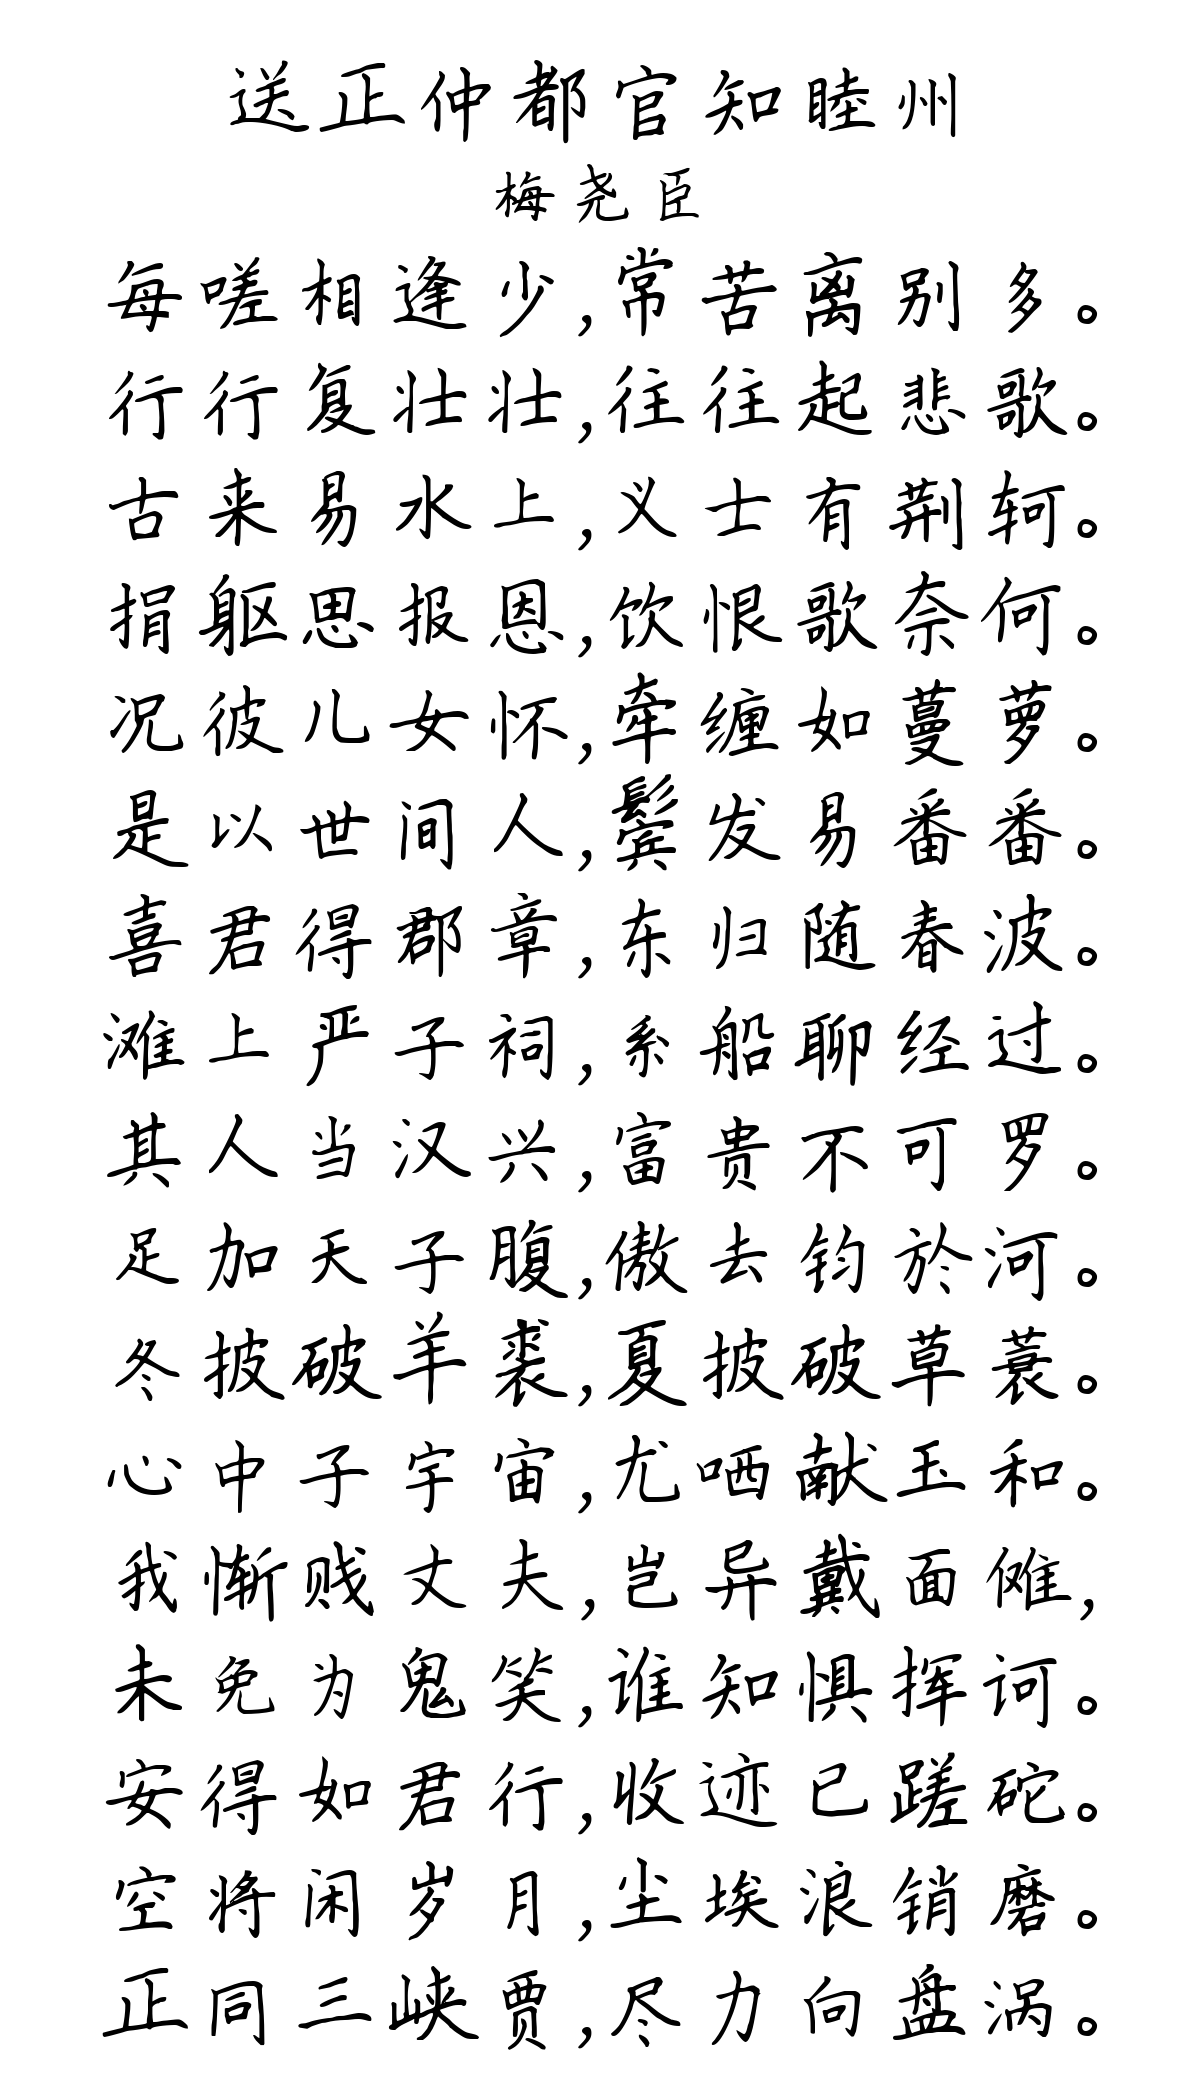 送正仲都官知睦州
梅尧臣
每嗟相逢少,常苦离别多。
行行复壮壮,往往起悲歌。
古来易水上,义士有荆轲。
捐躯思报恩,饮恨歌奈何。
况彼儿女怀,牵缠如蔓萝。
是以世间人,鬓发易番番。
喜君得郡章,东归随春波。
滩上严子祠,系船聊经过。
其人当汉兴,富贵不可罗。
足加天子腹,傲去钓於河。
冬披破羊裘,夏披破草蓑。
心中子宇宙,尤哂献玉和。
我惭贱丈夫,岂异戴面傩,
未免为鬼笑,谁知惧挥诃。
安得如君行,收迹已蹉砣。
空将闲岁月,尘埃浪销磨。
正同三峡贾,尽力向盘涡。